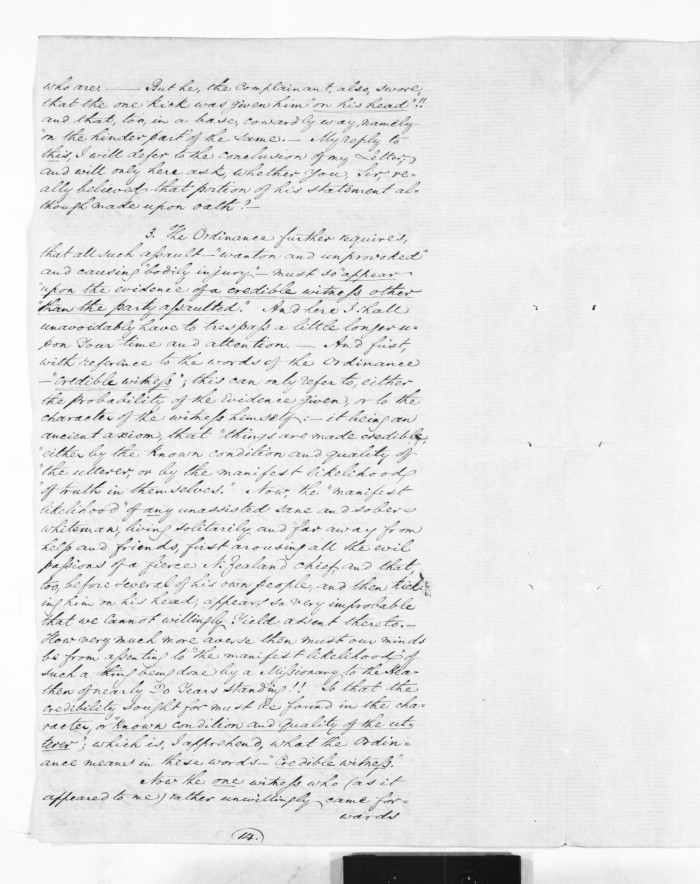 who are. —— But he, the complainant, also, swore,
that the one kick was given him "on his head"!!
and that, too, in a base, cowardly way, namely
"on the hinder part" of the same. — My reply to
this, I will defer to the conclusion of my Letter,
and will only here ask, whether You, Sir, re-
ally believed that portion of his statement al-
though made upon oath? —
3. The Ordinance further requires,
that all such assault — "wanton and unprovoked"
and causing "bodily injury" — must so "appear
"upon the evidence of a credible witness other
"than the party assaulted." And here I shall
unavoidably have to trespass a little longer u-
pon Your time and attention. — And first,
with reference to the words of the Ordinance
— "credible witness"; this can only refer to, either
the probability of the Evidence given, or to the
character of the witness himself: — it being an
ancient axiom, that "things are made credible,
"either by the known condition and quality of
"the utterer, or by the manifest likelihood
"of truth in themselves." Now, the "manifest
likelihood" of any unassisted sane and sober
whiteman, living solitarily and far away from
help and friends, first arousing all the evil
passions of a fierce N. Zealand chief, and that,
too, before several of his own people, and then kick-
ing him on his head, appears so very improbable
that we cannot willingly Yield assent thereto. —
How very much more averse then must our minds
be from assenting to "the manifest likelihood" of
such a thing being done by a Missionary to the Hea-
then of nearly 20 Years standing!! So that the
credibility sought for must be found in the cha-
racter, or "known condition and Quality of the ut-
terer"; which is, I apprehend, what the Ordin-
ance means in these words — "Credible witness.
Now the one witness who (as it
appeared to me) rather unwillingly came for-
wards
14.